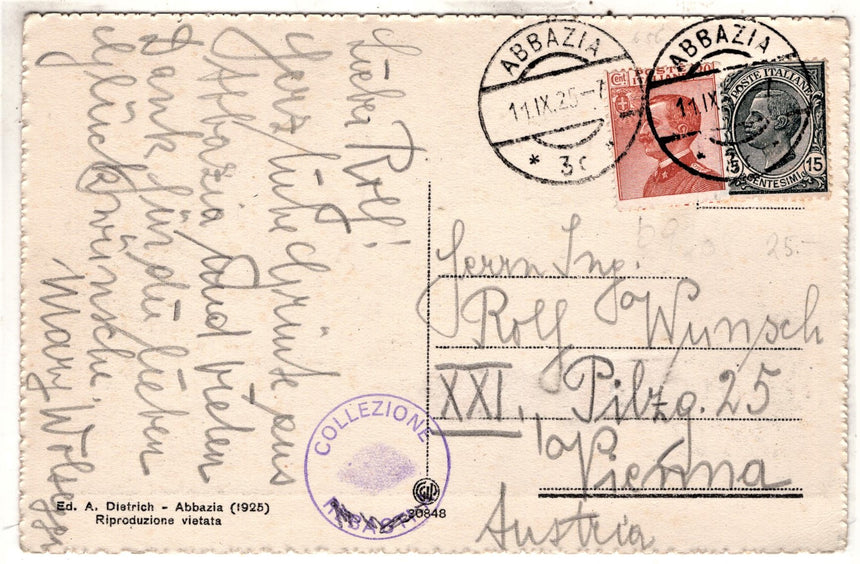 Lieber Rolf!
Herzliche Grüße aus
Abbazia und vielen
Dank für die lieben
Glückwünsche.
Mary
ABBAZIA
11.IX.25-7
* 3c *
ABBAZIA
11.IX
Cent. POSTE 20
POSTE ITALIANE
15 15
CENTESIMI
25.-
Herrn Ing.
Rolf Wunsch
XXI, Pilzg. 25
Vienna
Austria
COLLEZIONE
Ed. A. Dietrich - Abbazia (1925)
Riproduzione vietata
30848